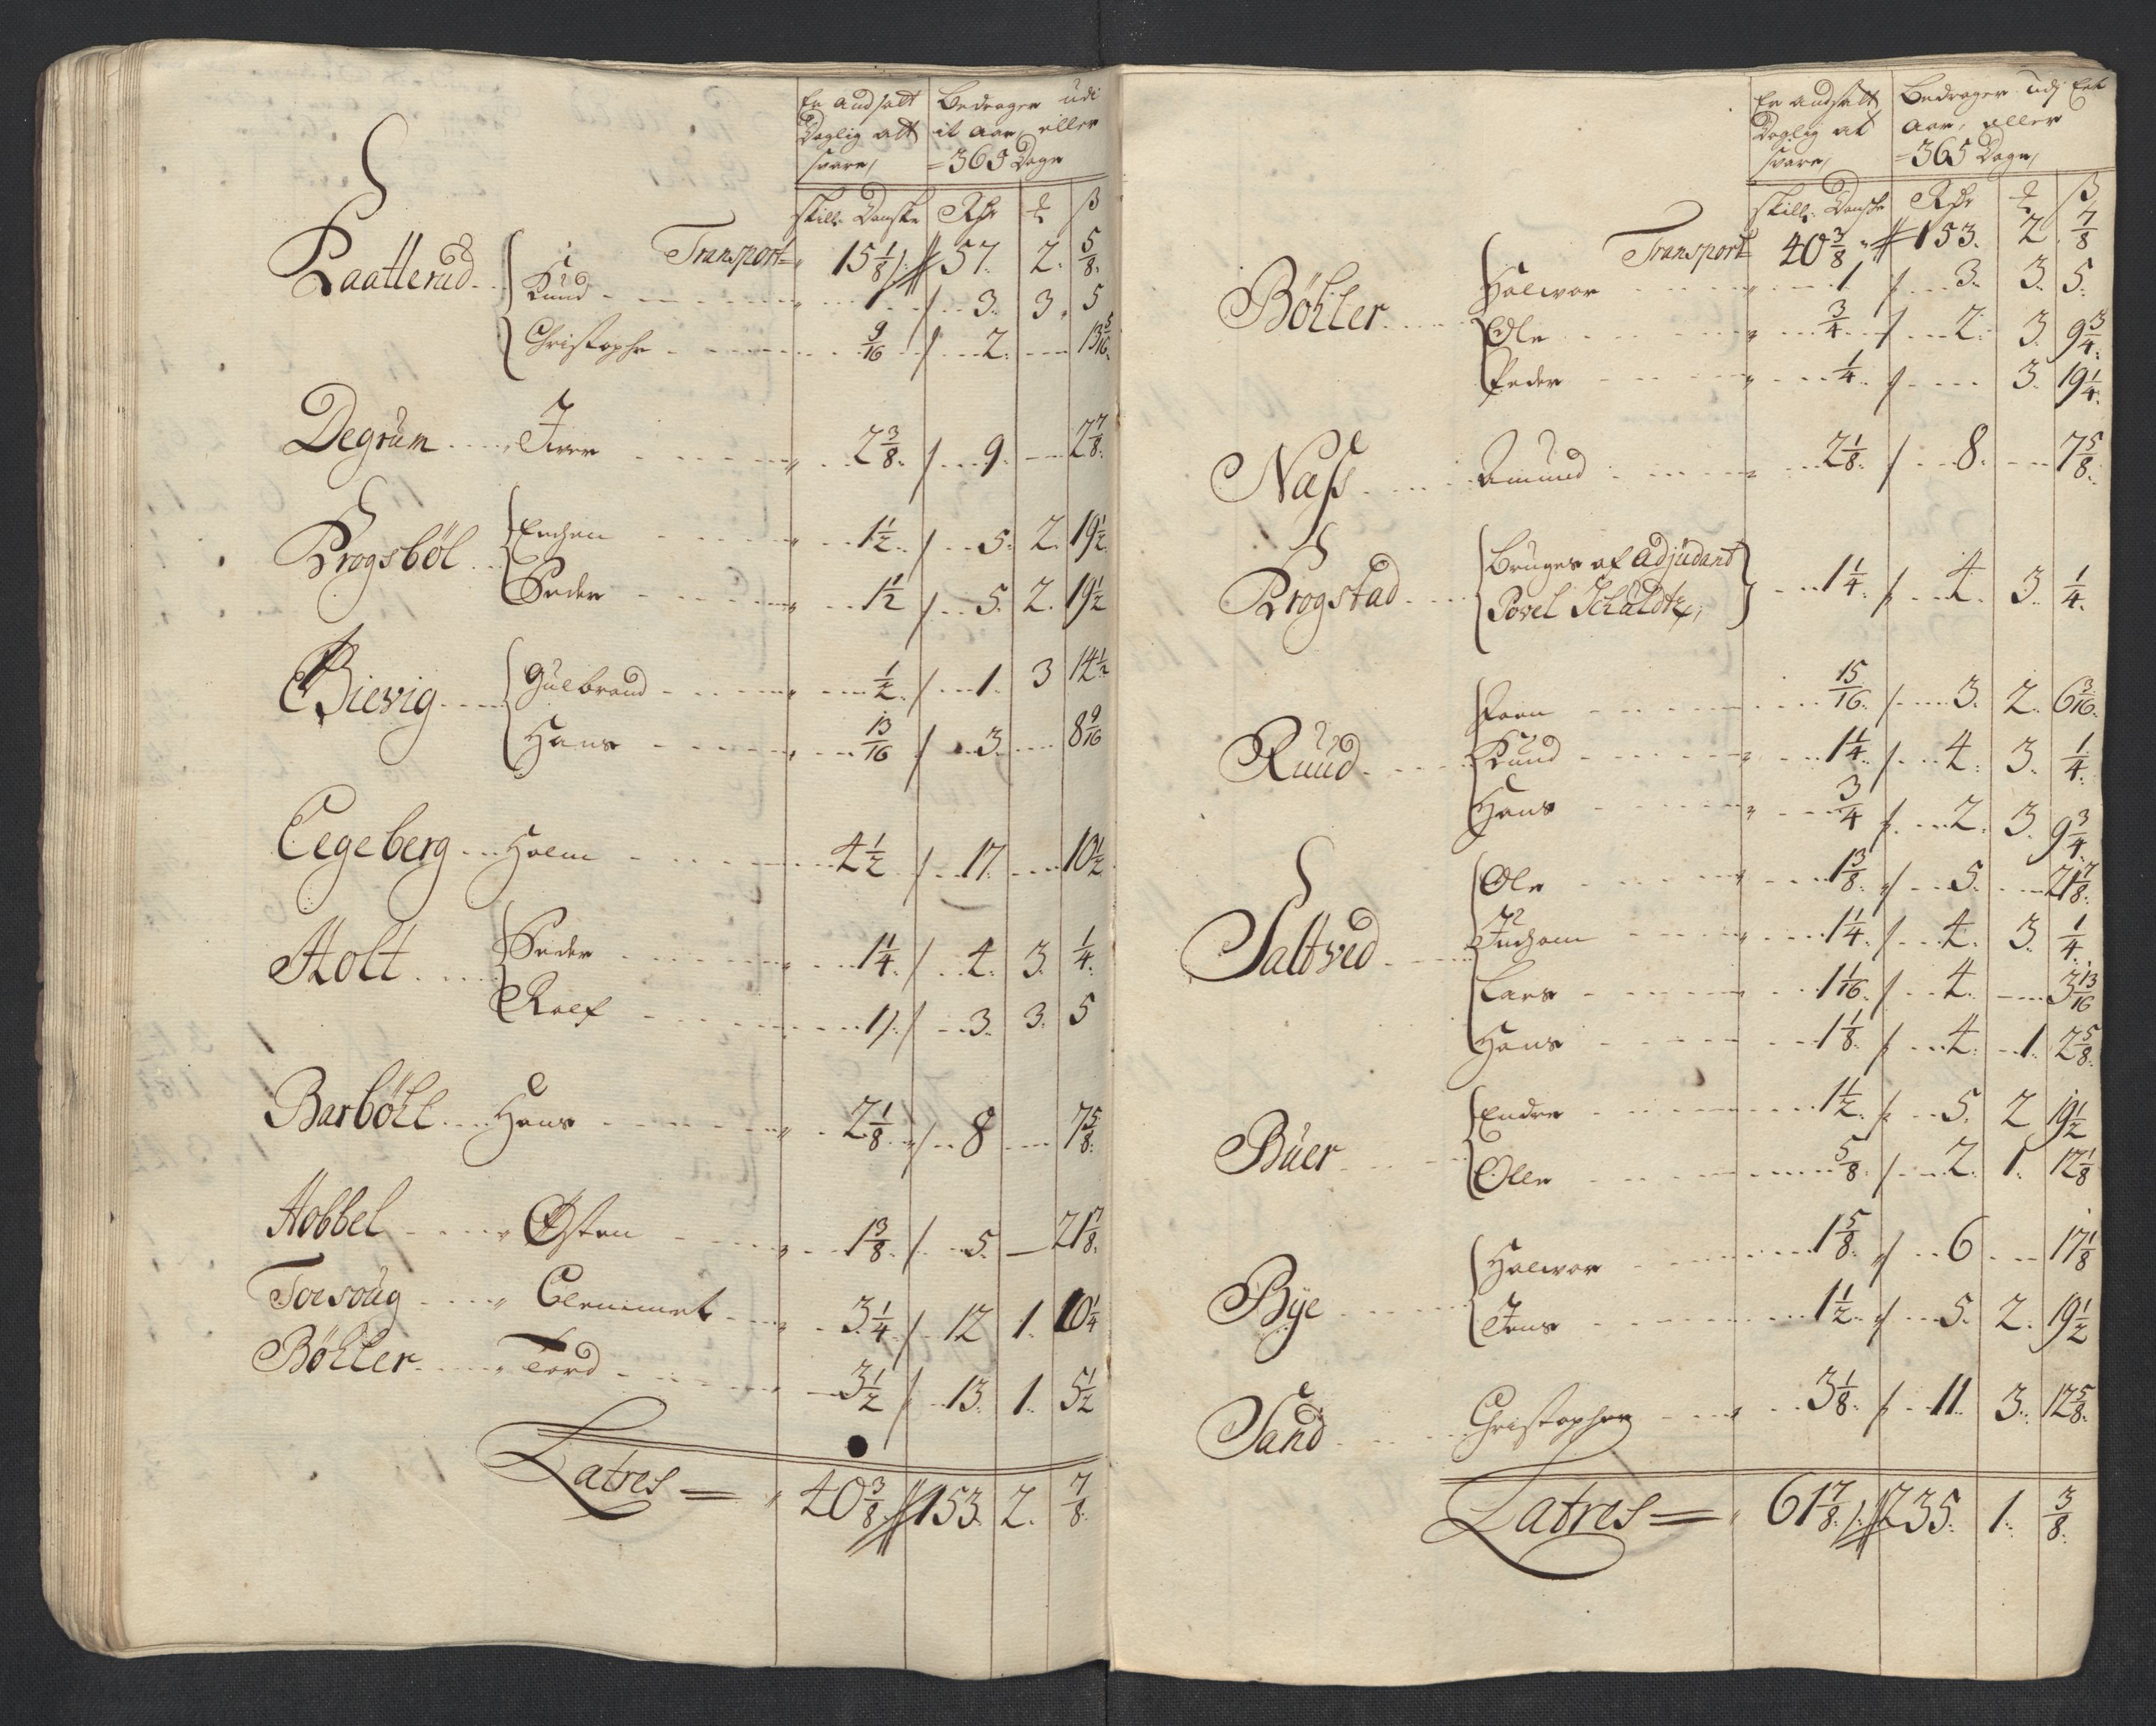 Er andsatt
Daglig att
svare,
Bedrager udi
it aar eller
=365 Dage
skill: Danske Rdr ß
Transport= 15 1/8 57. 2. 5/8.
Raatterud { Knud 1. 3. 3. 5
Christopher 9/16 2. 13 5/16.
Degrum Iver 2 3/8. 9. 2 7/8.
Krogsböl { 1 1/2. 5. 2. 19 1/2.
Peder 1 1/2 5. 2. 19 1/2
Bievig { Gulbrand 1/2. 1. 3 14 1/2
Hans 13/16 3. 8 9/16
Eegeberg Holm 4 1/2 17. 10 1/2
Holt { Peder 1 1/4. 4. 3. 1/4.
Rolf 1 3. 3. 5
Barböhl Hans 2 1/8 8 7 5/8.
Hobbel Östen 1 3/8. 5. 21 7/8.
Torsoug Clemmet 3 1/4 12 1. 10 1/4
Böhler Tord 3 1/2 13. 1. 5 1/2
Latres = 40 3/8. 153. 2. 7/8.
Er andsatt
Daglig at
svare,
Bedrager udj Eet
aar, eller
=365 Dage,
skill: Danske Rdr ß
Transport 40 3/8 153. 2. 7/8
Böhler { Halvor 1 3. 3. 5.
Ole 3/4. 2. 3. 9 3/4.
Peder 1/4. 3. 19 1/4.
Naß Amund 2 1/8. 8. 7 5/8.
Krogstad { Bruges af Adjudant
Povel Schuldtz, } 1 1/4. 4. 3. 1/4.
Ruud { 15/16. 3. 2. 6 3/16.
Knud 1 1/4. 4. 3. 1/4.
Hans 3/4 2. 3. 9 3/4.
Saltved { Ole 1 3/8. 5. 21 7/8.
1 1/4. 4. 3. 1/4.
Lars 1 1/16. 4. 3 13/16
Hans 1 1/8. 4. 1. 2 5/8.
Buer { Endre 1 1/2. 5. 2 19 1/2
Olle 5/8. 2. 1. 12 1/8
Bye { Halvor 1 5/8. 6 17 1/8
Jens 1 1/2. 5. 2. 19 1/2
Sand Christopher 3 1/8. 11. 3. 12 5/8.
Latres = 61 7/8. 235. 1. 3/8.